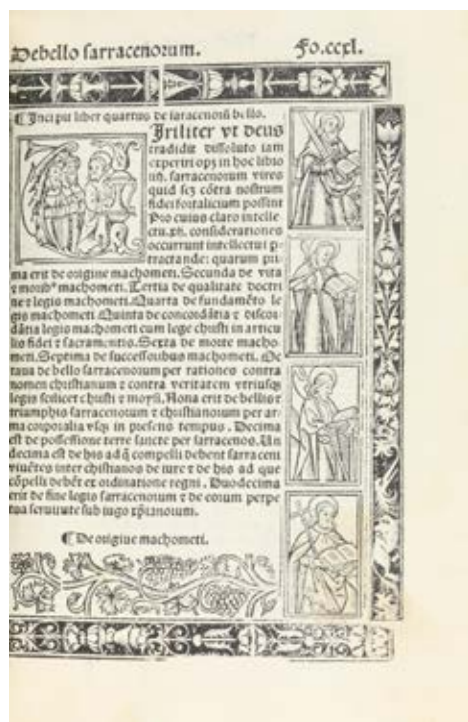 De bello sarracenorum. Fo.ccxl.
¶ Incipit liber quartus de saracenorũ bello.
Uriliter vt deus
tradidit dissoluto iam
experiri opꝫ in hoc libro
iiij. sarracenorum vires
quid scꝫ cõtra nostrum
fidei fortalicium possint
Pro cuius claro intelle
ctu .xij. considerationes
occurrunt intellectui p-
tractande: quarum pri
ma erit de origine machometi. Secunda de vita
⁊ morib⁹ machometi. Tertia de qualitate doctri
ne ⁊ legis machometi. Quarta de fundamẽto le
gis machometi Quinta de concordãtia ⁊ discor-
dãtia legis machometi cum lege christi in articu
lis fidei ⁊ sacramentis. Sexta de morte macho-
meti. Septima de successoribus machometi. Oc
taua de bello sarracenorum per rationes contra
nomen christianum ⁊ contra veritatem vtriusqꝫ
legis scilicet christi ⁊ moysi. Nona erit de bellis ⁊
triumphis sarracenorum ⁊ christianorum per ar
ma corporalia vsqꝫ in presens tempus. Decima
est de possessione terre sancte per sarracenos. Un
decima est de his ad q̃ compelli debent sarraceni
viuẽtes inter christianos de iure ⁊ de his ad que
cõpelli debẽt ex ordinatione regni. Duodecima
erit de fine legis sarracenorum ⁊ de eorum perpe
tua seruitute sub iugo xp̃ianorum.
¶ De origiue machometi.